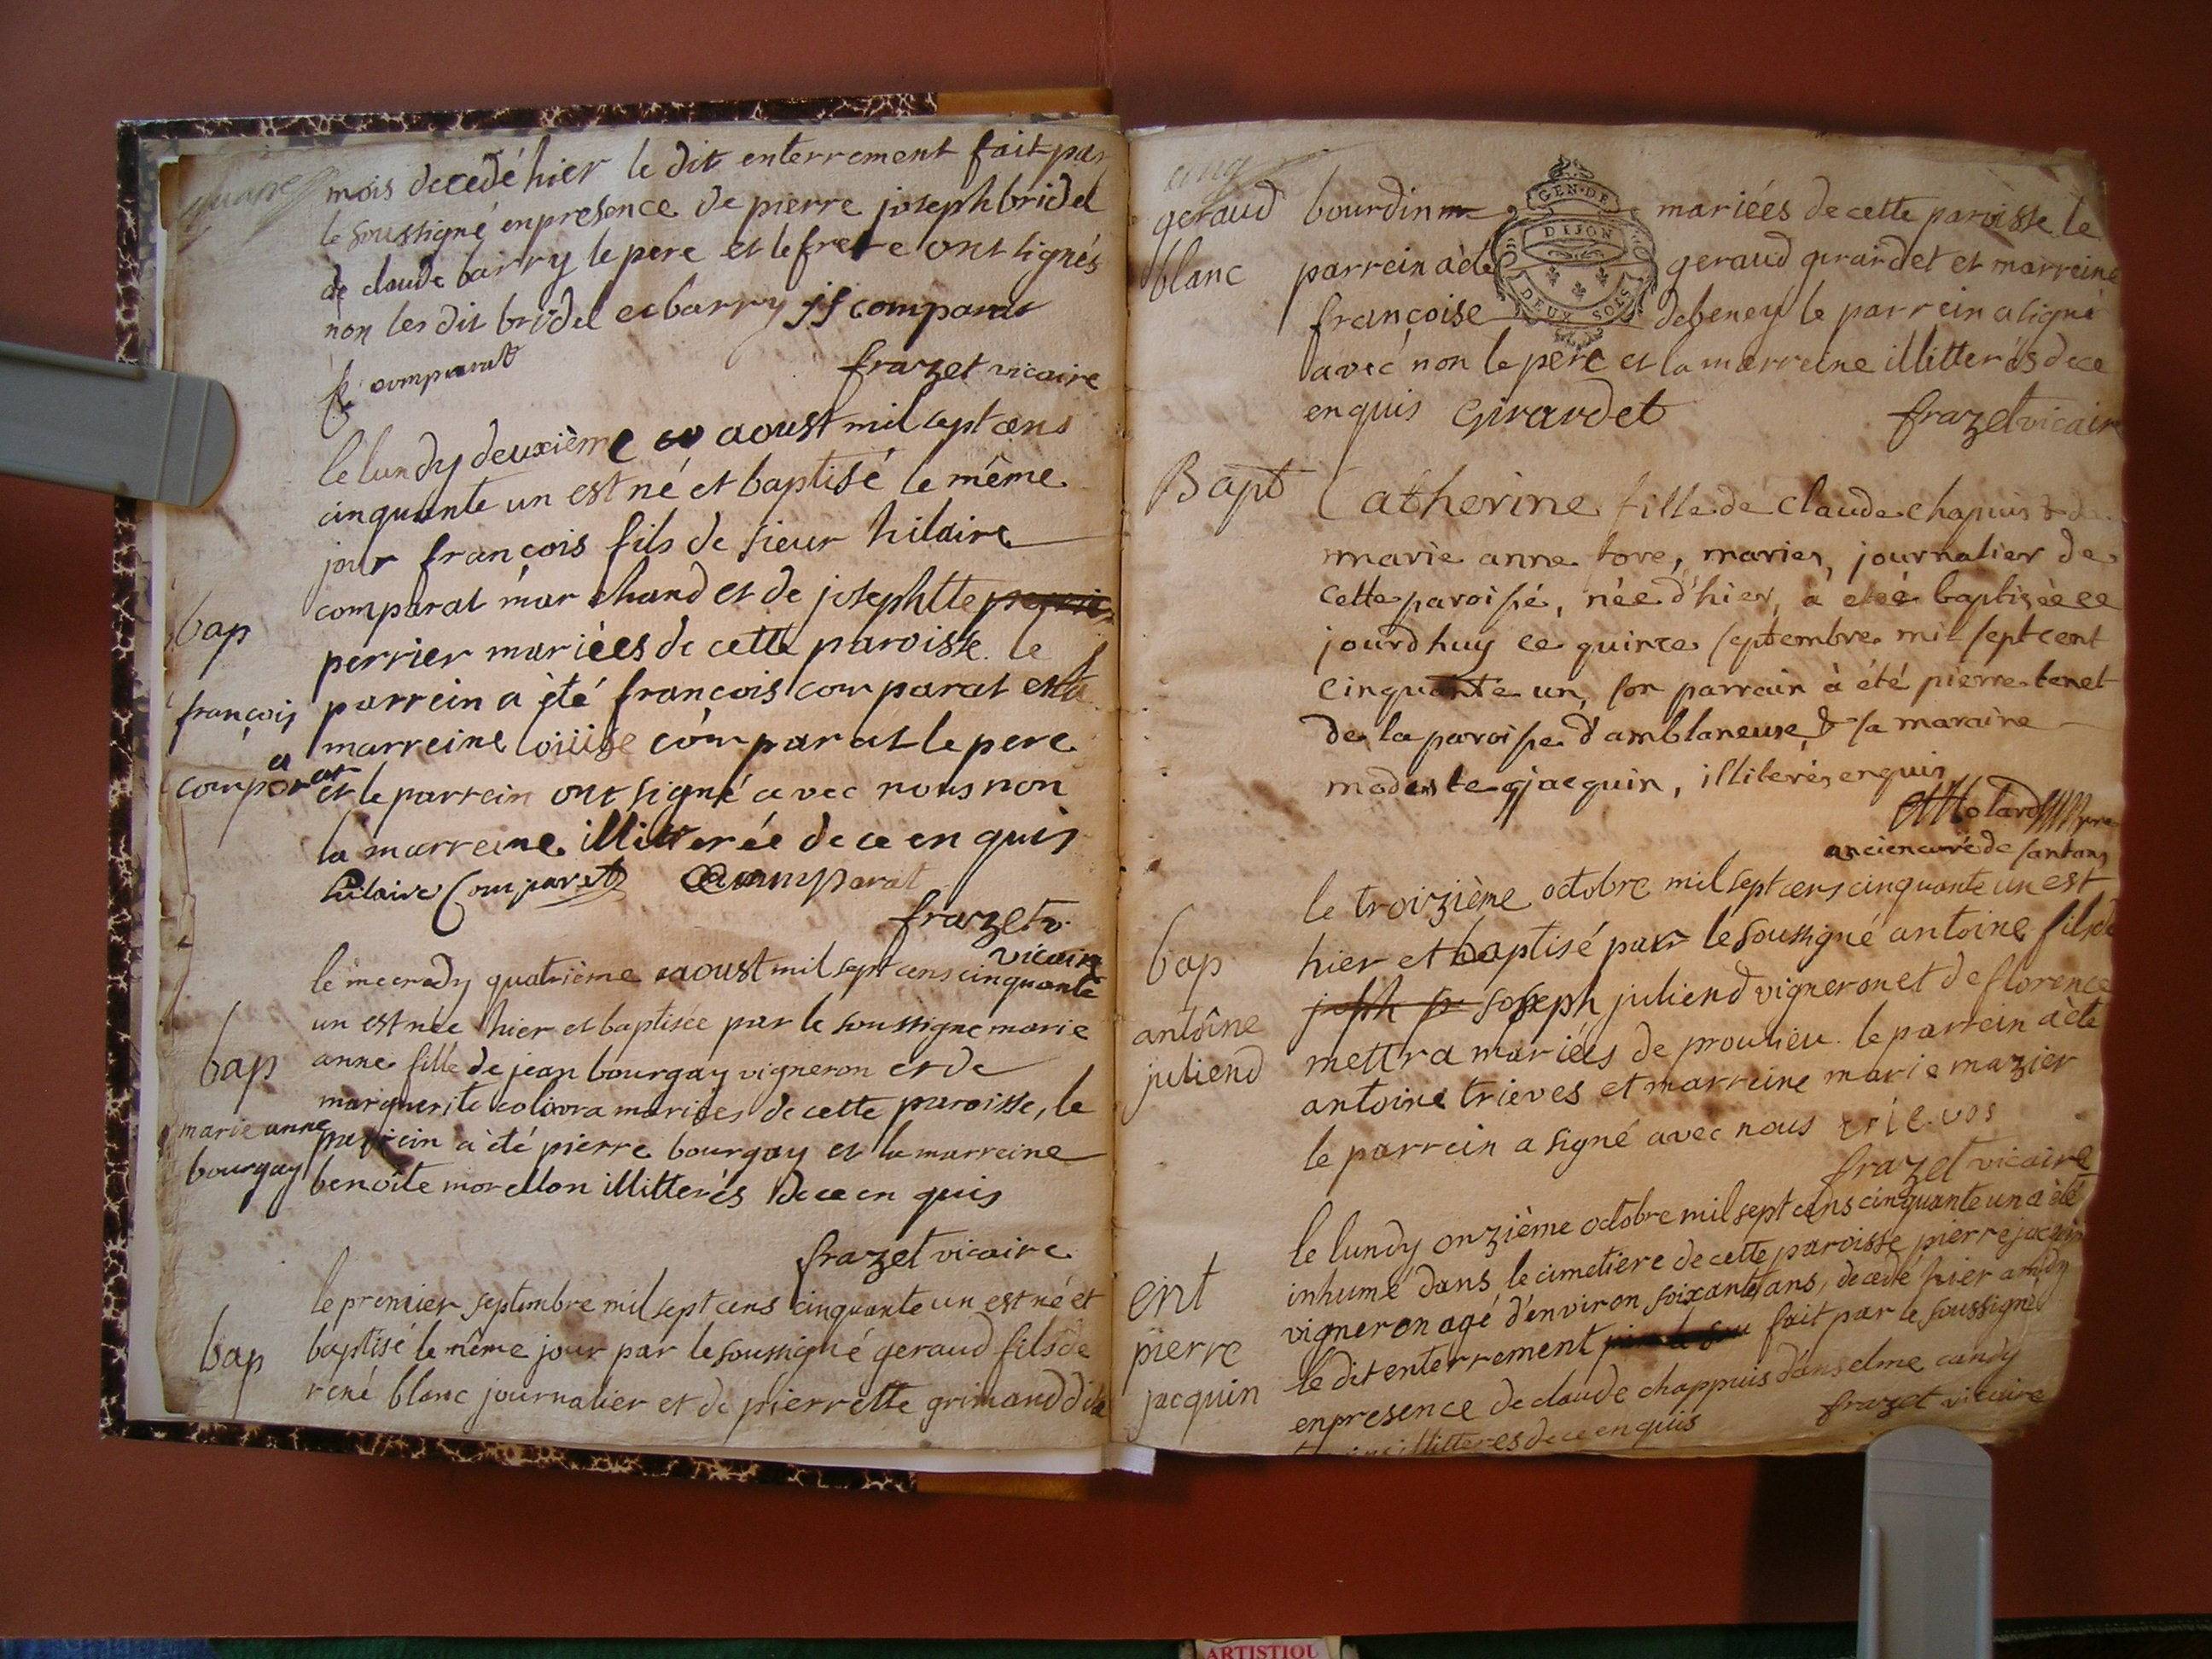 mois decedé hier le dit enterrement fait par
le soussigné en presence de pierre joseph bridel
de claude barry le pere et le frere ont signés
non les dit bridel et barry jf comparat
comparat frazet vicaire
le lundy deuxième aoust mil sept cens
cinquante un est né et baptisé le même
jour françois fils de sieur hilaire
comparat marchand et de josephtte
bap
perrier mariées de cette paroisse le
françois
parrein a été françois comparat et la
marreine loüise comparat le pere
comparat
et le parrein ont signé avec nous non
la marreine illitterée de ce enquis
hilaire Comparat Comparat
frazet v.
vicaire
le mecredy quatrième aoust mil sept cens cinquante
un est née hier et baptisée par le soussigné marie
bap
anne fille de jean bourgay vigneron et de
marguerite colovra mariées de cette paroisse, le
marie anne
parrein a èté pierre bourgay et la marreine
bourgay
benoîte morellon illitterés de ce en quis
frazet vicaire
le premier septembre mil sept cens cinquante un est né et
bap
baptisé le même jour par le soussigné geraud fils de
rené blanc journalier et de pierrette grimand dite
cinq
GEN. DE
DIJON
DEUX SOLS
geraud
bourdin mariées de cette paroisse le
blanc
parrein a été geraud girardet et marreine
françoise debeney le parrein a signé
avec non le pere et la marreine illitterés de ce
enquis Girardet frazet vicaire
Bapt
Catherine fille de Claude chapuis & de
marie anne tore, maries, journalier de
cette paroisse, née d'hier, à étéé baptisèe ce
jourdhuy ce quinze septembre mil sept cent
cinquante un, son parrain à été pierre tenet
de la paroisse d'amblaneuse, & sa maraine
modeste jacquin, illiterés enquis
Molard pre
ancien curé de santans
le troizième octobre mil sept cens cinquante un est
bap
hier et baptisé par le soussigné antoine fils de
joseph juliend vigneron et de florence
antoîne
mettra mariées de proulieu. le parrein a été
juliend
antoine trieves et marreine marie mazier
le parrein a signé avec nous trievos
frazet vicaire
le lundy onzième octobre mil sept cens cinquante un a èté
ent
inhumé dans le cimetiere de cette paroisse pierre jacquin
vigneron agé d'environ soixante ans, decedé hier a midy
pierre
le dit enterrement fait par le soussigné
jacquin
en presence de claude chappuis d'anselme candy
illitteres de ce enquis frazet vicaire
ARTISTIQU